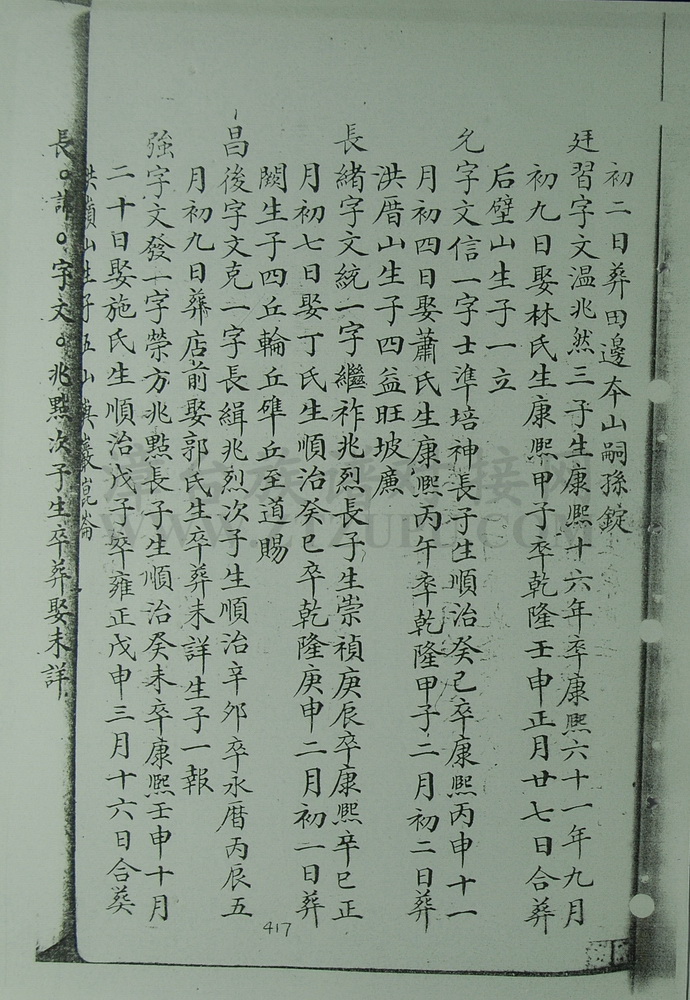 初二日葬田邊本山嗣孫錠
廷習字文温兆然三子生康熙十六年卒康熙六十一年九月
初九日娶林氏生康熙甲子卒乾隆壬申正月廿七日合葬
后壁山生子一立
允字文信一字士準培神長子生順治癸巳卒康熙丙申十一
月初四日娶蕭氏生康熙丙午卒乾隆甲子二月初二日葬
洪厝山生子四益旺坡廌
長緒字文統一字繼祚兆烈長子生崇禎庚辰卒康熙辛巳正
月初七日娶丁氏生順治癸巳卒乾隆庚申二月初一日葬
闕生子四丘輪丘硉丘至道賜
昌後字文克一字長緝兆烈次子生順治辛夘卒永厝丙辰五
月初九日葬店前娶郭氏生卒葬未詳生子一報
強字文發一字榮方兆點長子生順治癸未卒康熙壬申十月
二十日娶施氏生順治戊子卒雍正戊申三月十六日合葵
山生子五山巖崑崙
長。。字文。兆點次子生卒葬娶未詳
417